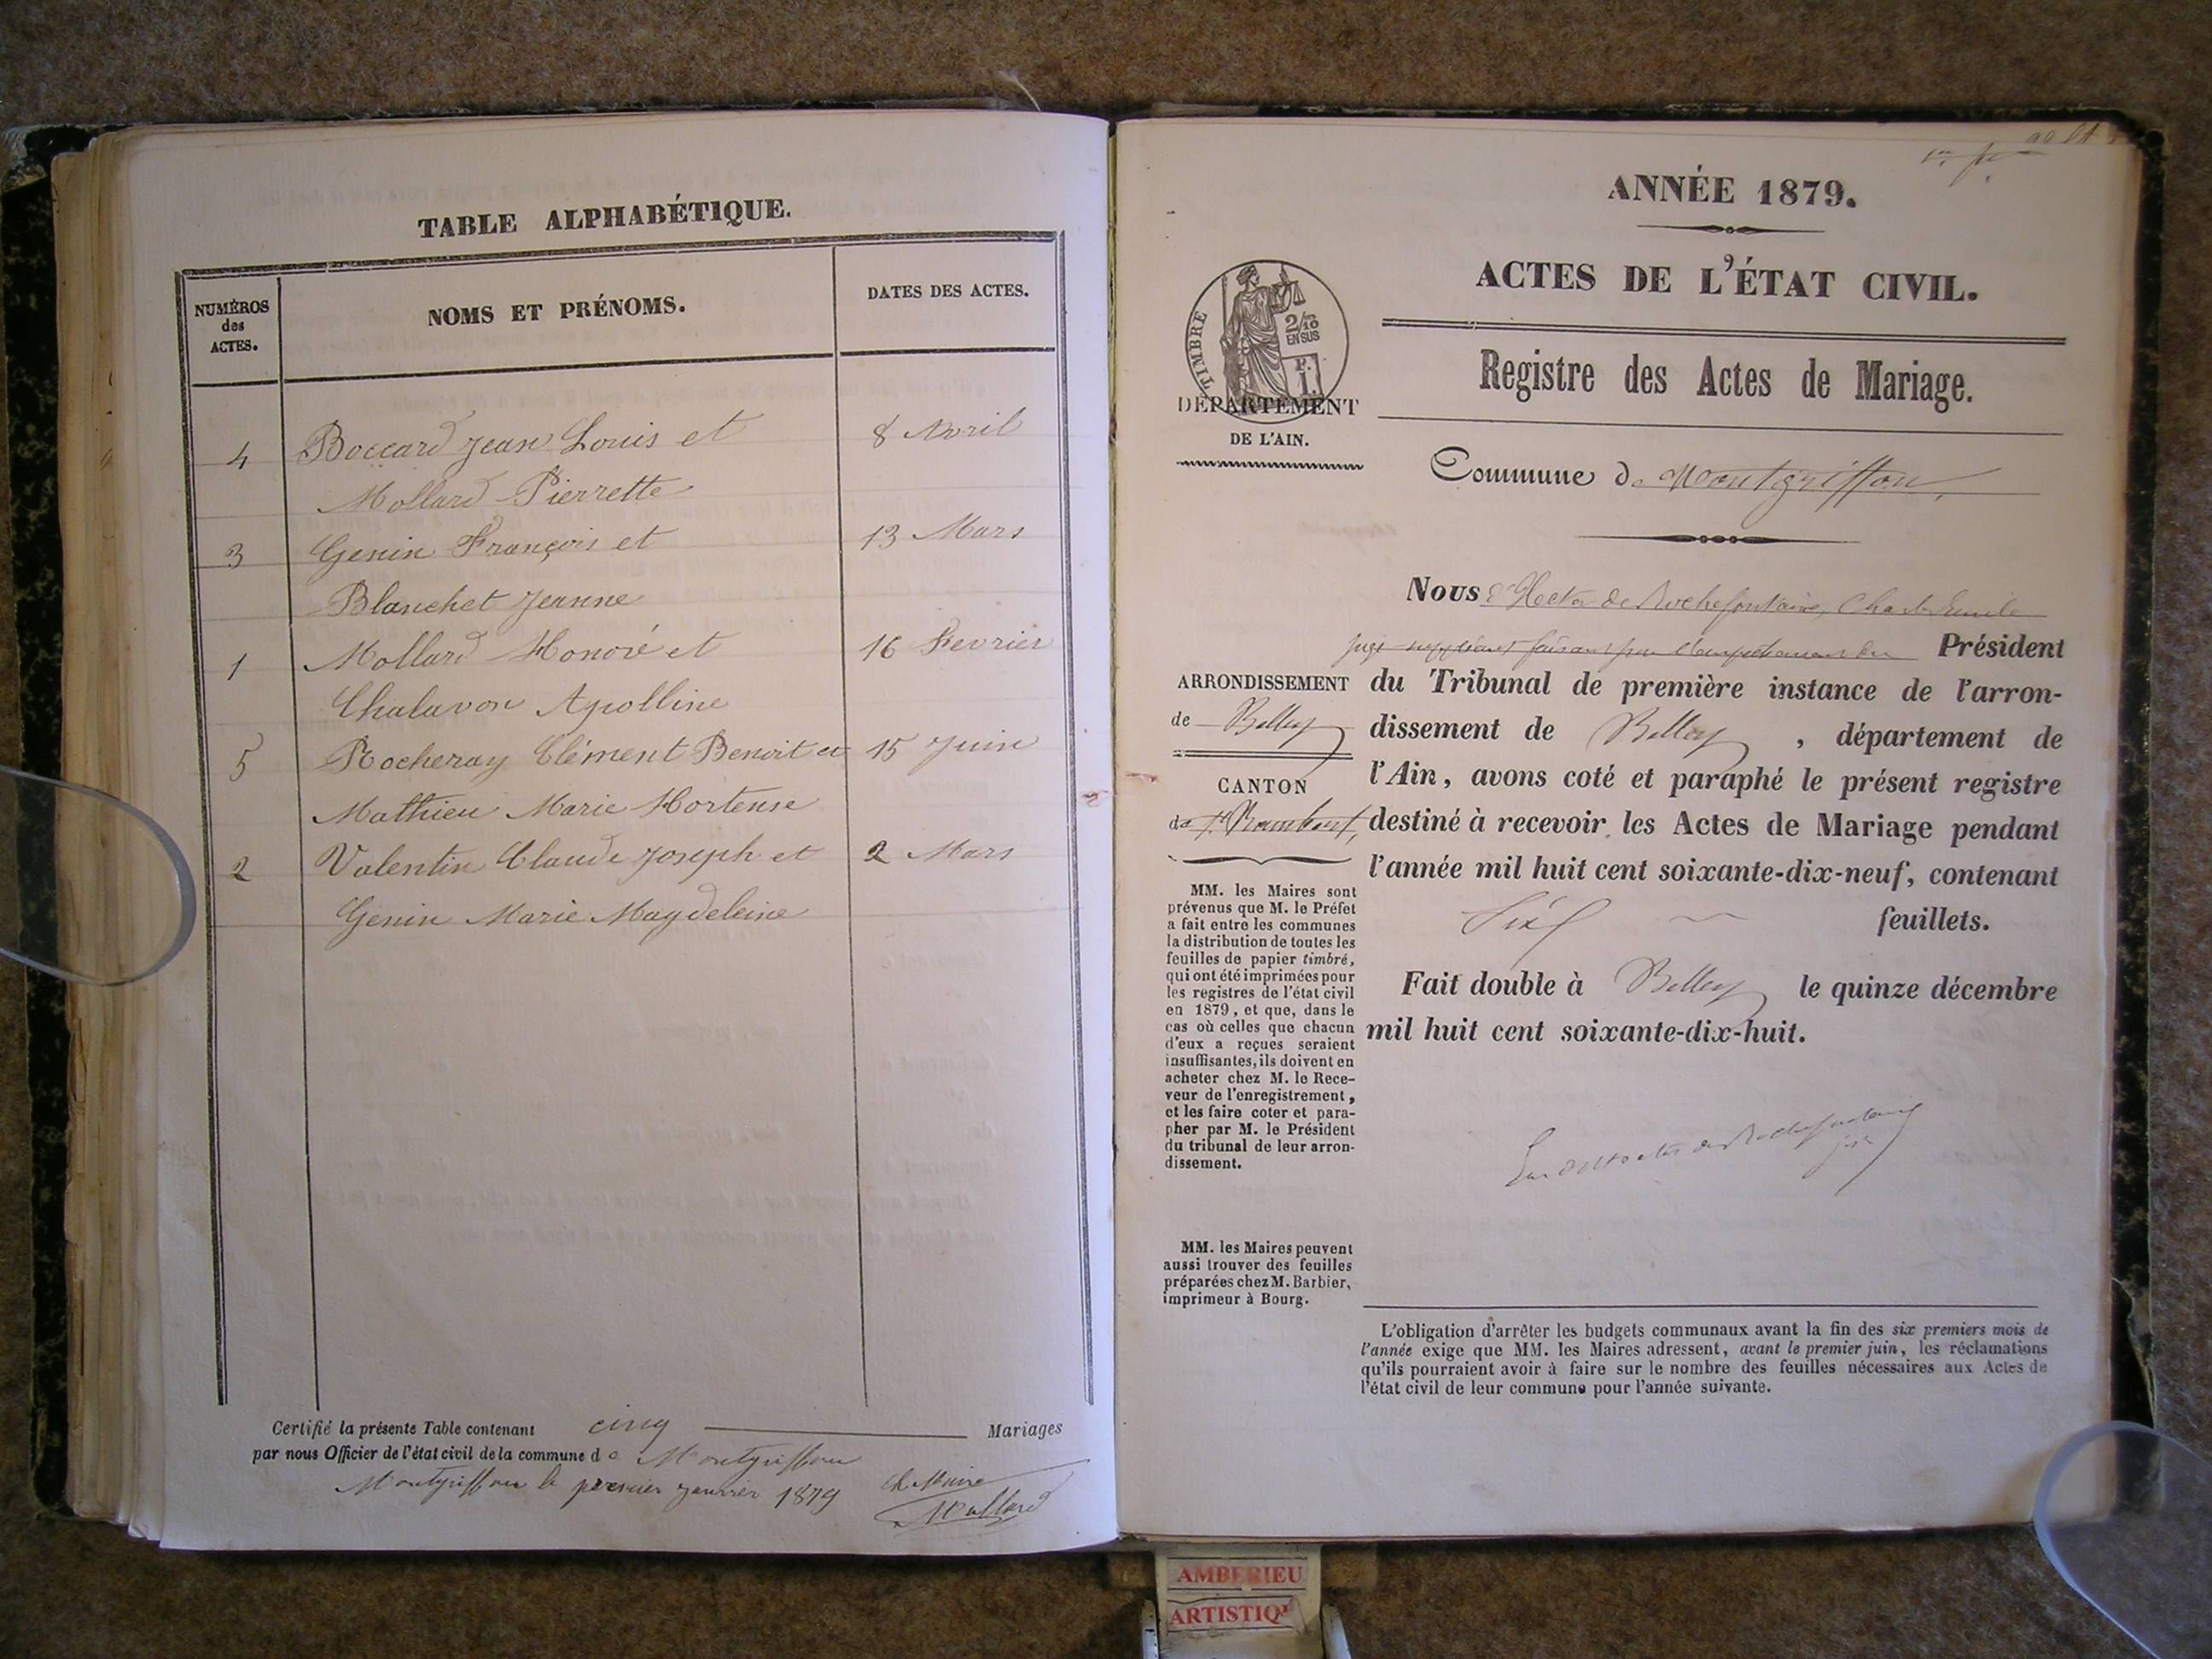 TABLE ALPHABÉTIQUE.
NUMÉROS
des
ACTES.
NOMS ET PRÉNOMS.
DATES DES ACTES.
4 Boccard Jean Louis et 8 Avril
Mollard Pierrette
3 Genin François et 13 Mars
Blanchet Jeanne
1 Mollard Honoré et 16 Fevrier
Chalavon Apolline
5 Rocheray Clément Benoit et 15 Juin
Mathieu Marie Hortense
2 Valentin Claude Joseph et 2 Mars
Genin Marie Magdeleine
Certifié la présente Table contenant cinq Mariages
par nous Officier de l'état civil de la commune de Montgriffon
Montgriffon le premier janvier 1879
Le Maire
Mollard
ANNÉE 1879.
ACTES DE L'ÉTAT CIVIL.
Registre des Actes de Mariage.
TIMBRE
2/10
EN SUS
F.
1.
DÉPARTEMENT
DE L'AIN.
Commune de Montgriffon,
Nous Hector de Rochefontaine, Charles Emile
juge suppléant faisant pour l'empechement du Président
du Tribunal de première instance de l'arron-
dissement de Belley, département de
l'Ain, avons coté et paraphé le présent registre
destiné à recevoir les Actes de Mariage pendant
l'année mil huit cent soixante-dix-neuf, contenant
Six feuillets.
Fait double à Belley le quinze décembre
mil huit cent soixante-dix-huit.
ARRONDISSEMENT
de Belley
CANTON
de St Rambert,
MM. les Maires sont
prévenus que M. le Préfet
a fait entre les communes
la distribution de toutes les
feuilles de papier timbré,
qui ont été imprimées pour
les registres de l'état civil
en 1879, et que, dans le
cas où celles que chacun
d'eux a reçues seraient
insuffisantes, ils doivent en
acheter chez M. le Rece-
veur de l'enregistrement,
et les faire coter et para-
pher par M. le Président
du tribunal de leur arron-
dissement.
MM. les Maires peuvent
aussi trouver des feuilles
préparées chez M. Barbier,
imprimeur à Bourg.
L'obligation d'arrêter les budgets communaux avant la fin des six premiers mois de
l'année exige que MM. les Maires adressent, avant le premier juin, les réclamations
qu'ils pourraient avoir à faire sur le nombre des feuilles nécessaires aux Actes de
l'état civil de leur commune pour l'année suivante.
AMBERIEU
ARTISTIQ